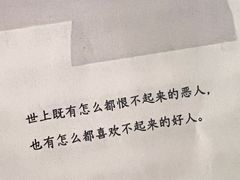 世上既有怎么都恨不起来的恶人，
也有怎么都喜欢不起来的好人。